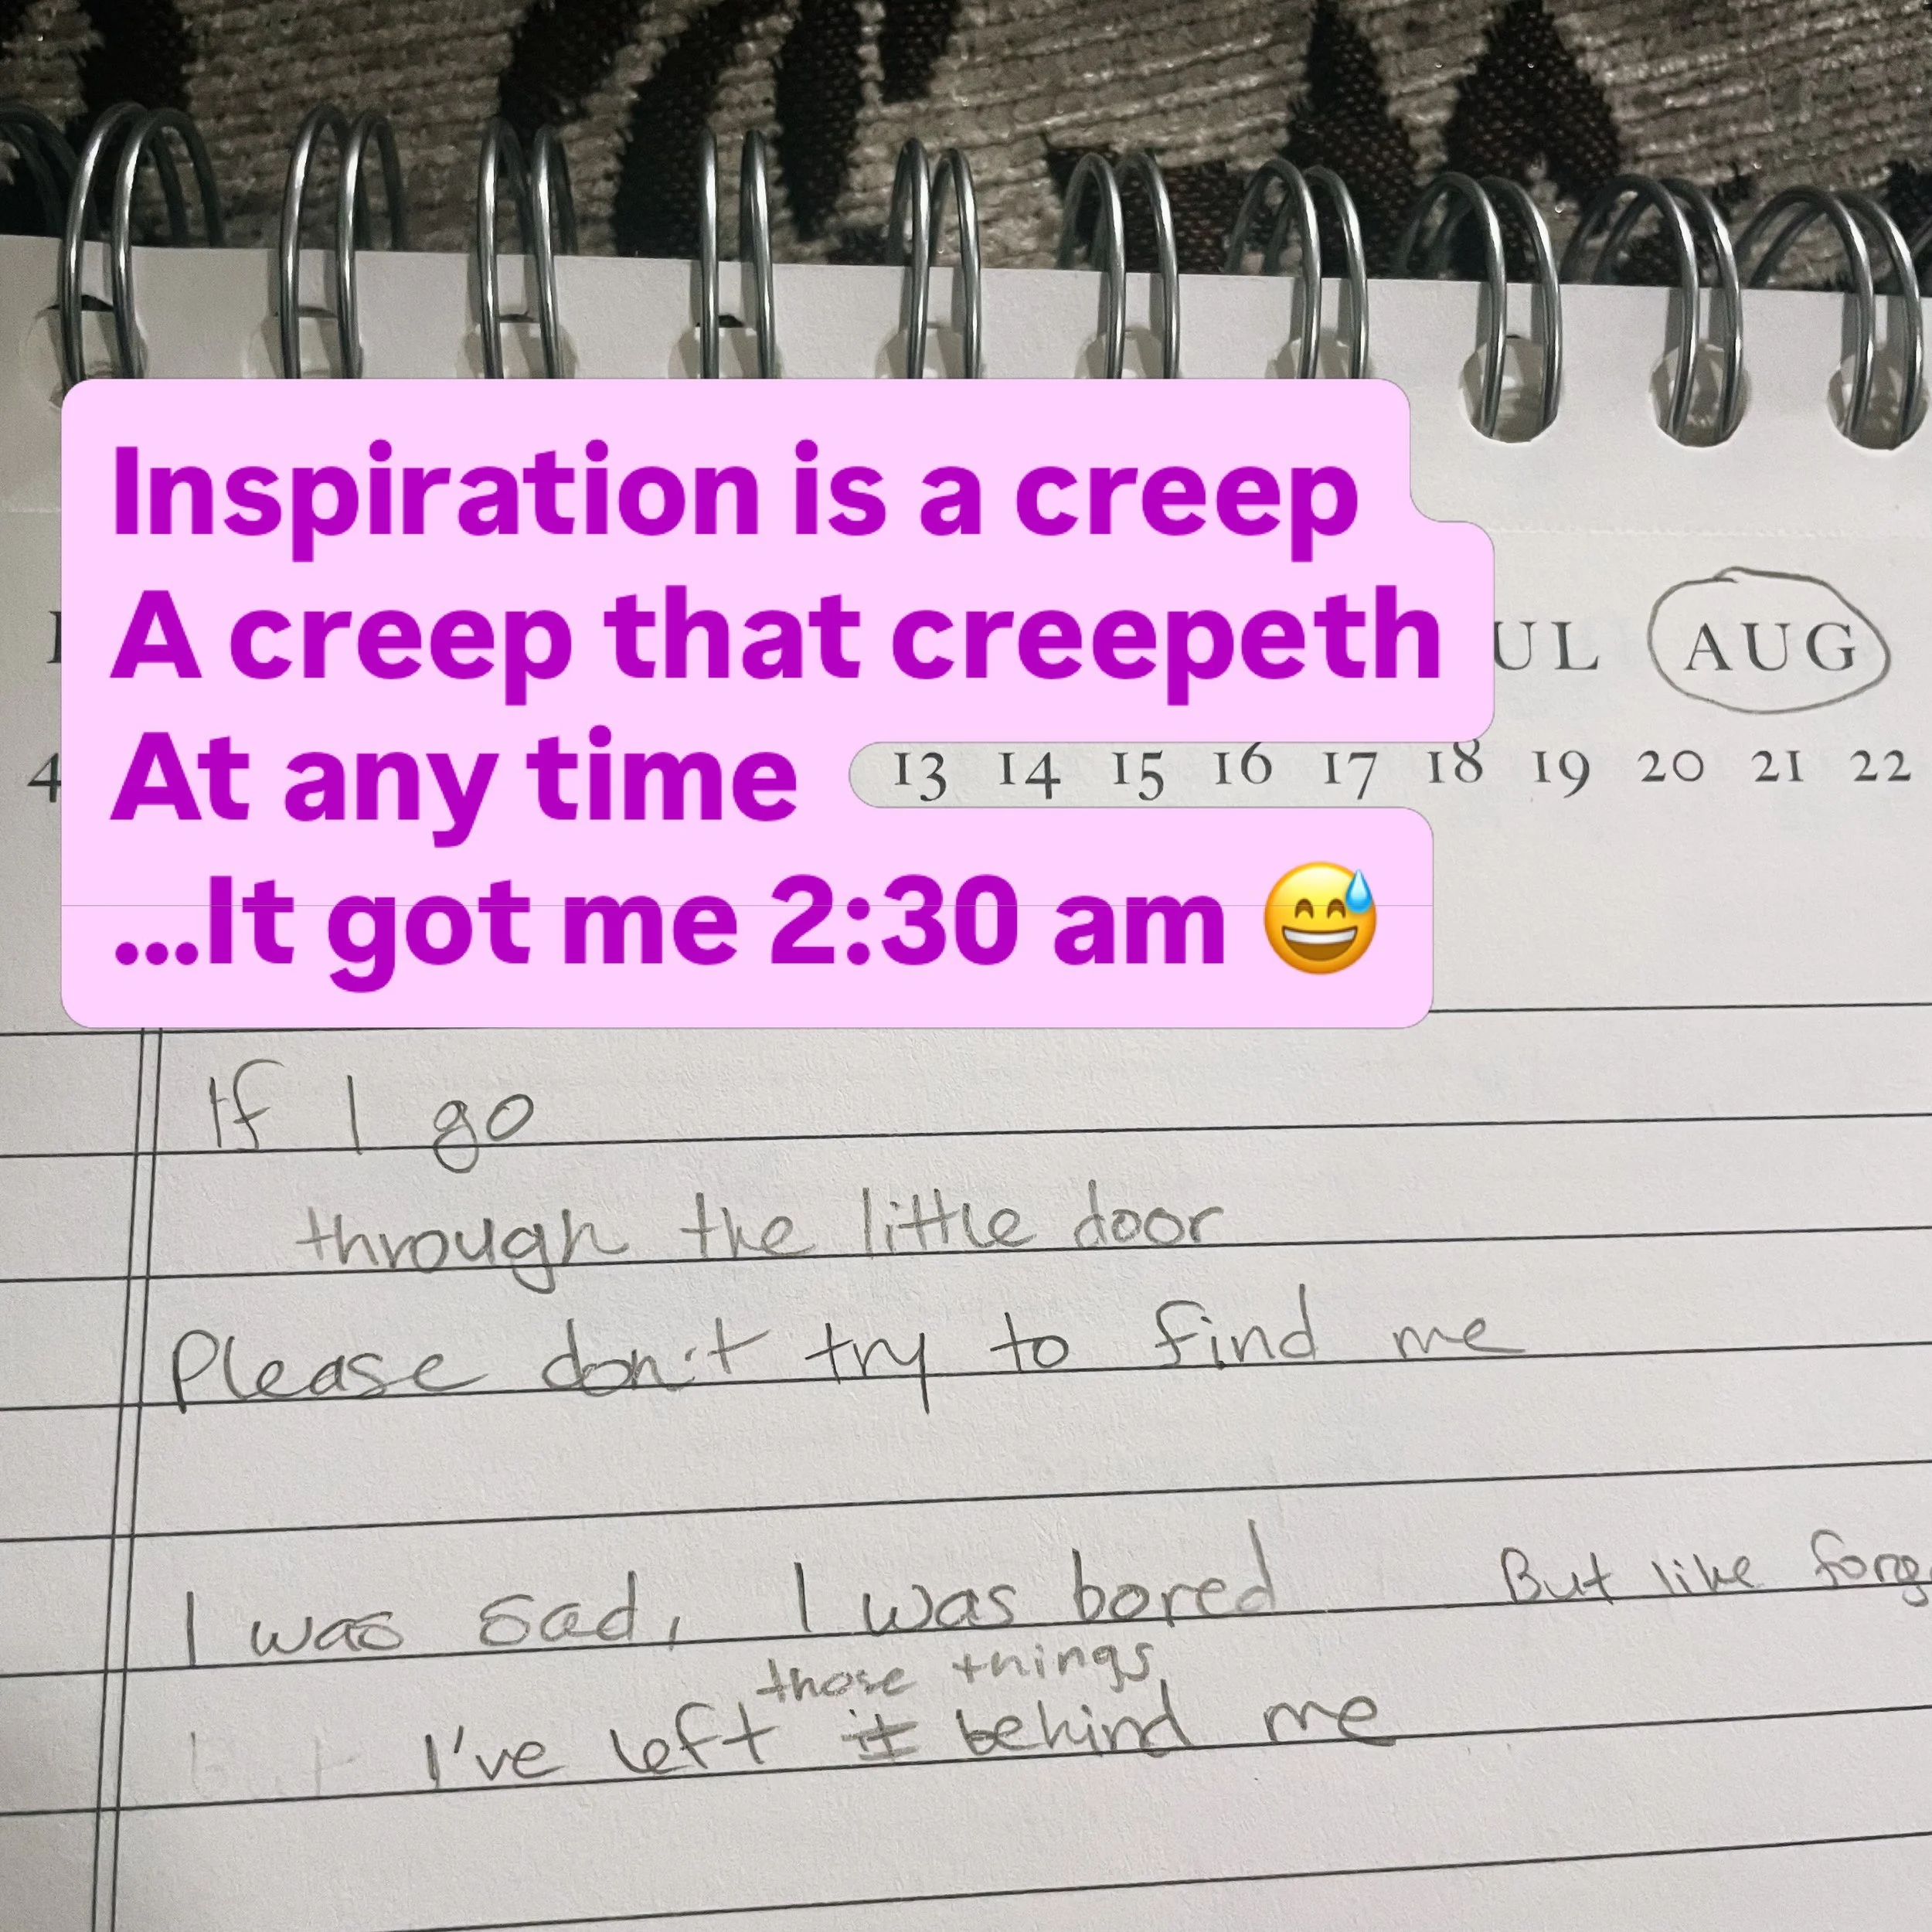 Inspiration is a creep
A creep that creepeth
UL AUG
At any time
4 13 14 15 16 17 18 19 20 21 22
...It got me 2:30 am 😅
If I go
through the little door
Please don't try to find me
I was sad, I was bored But like
those things
I've left it behind me